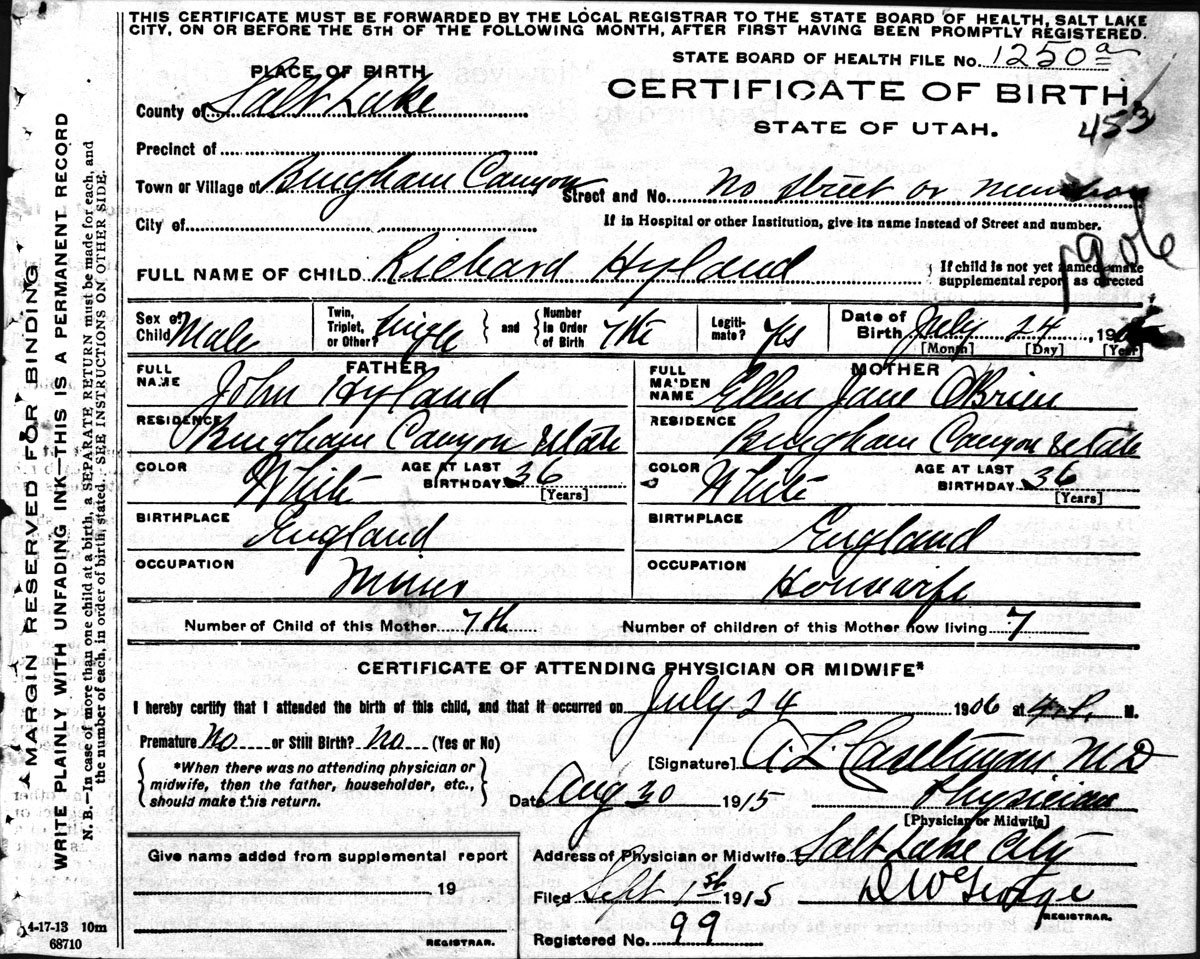 THIS CERTIFICATE MUST BE FORWARDED BY THE LOCAL REGISTRAR TO THE STATE BOARD OF HEALTH, SALT LAKE
CITY, ON OR BEFORE THE 5TH OF THE FOLLOWING MONTH, AFTER FIRST HAVING BEEN PROMPTLY REGISTERED.
STATE BOARD OF HEALTH FILE No. 1250a
CERTIFICATE OF BIRTH
STATE OF UTAH.
453
PLACE OF BIRTH
County of Salt Lake
Precinct of
Town or Village of Bingham Canyon Street and No. No street or number
City of
If in Hospital or other Institution, give its name instead of Street and number.
1906
FULL NAME OF CHILD Richard Hyland
If child is not yet named make
supplemental report as directed
Sex of Child Male Twin, Triplet, or Other? Single and Number in Order of Birth 7th Legiti-mate? Yes Date of Birth July 24, 190
[Month] [Day] [Year]
FATHER MOTHER
FULL NAME John Hyland FULL MAIDEN NAME Ellen Jane O'Brien
RESIDENCE Bingham Canyon Utah RESIDENCE Bingham Canyon Utah
COLOR White AGE AT LAST BIRTHDAY 36 [Years] COLOR White AGE AT LAST BIRTHDAY 36 [Years]
BIRTHPLACE England BIRTHPLACE England
OCCUPATION Miner OCCUPATION Housewife
Number of Child of this Mother 7th Number of children of this Mother now living 7
CERTIFICATE OF ATTENDING PHYSICIAN OR MIDWIFE*
I hereby certify that I attended the birth of this child, and that it occurred on July 24 1906 at M.
Premature No or Still Birth? No (Yes or No)
*When there was no attending physician or
midwife, then the father, householder, etc.,
should make this return.
[Signature] A. L. Castleman MD
Date Aug 30 1915 Physician
[Physician or Midwife]
Give name added from supplemental report
19
REGISTRAR.
Address of Physician or Midwife Salt Lake City
Filed Sept 1st 1915 D W George
REGISTRAR.
Registered No. 99
4-17-13 10m
68710
MARGIN RESERVED FOR BINDING
WRITE PLAINLY WITH UNFADING INK-THIS IS A PERMANENT RECORD
N. B.—In case of more than one child at a birth, a SEPARATE RETURN must be made for each, and
the number of each, in order of birth, stated. SEE INSTRUCTIONS ON OTHER SIDE.